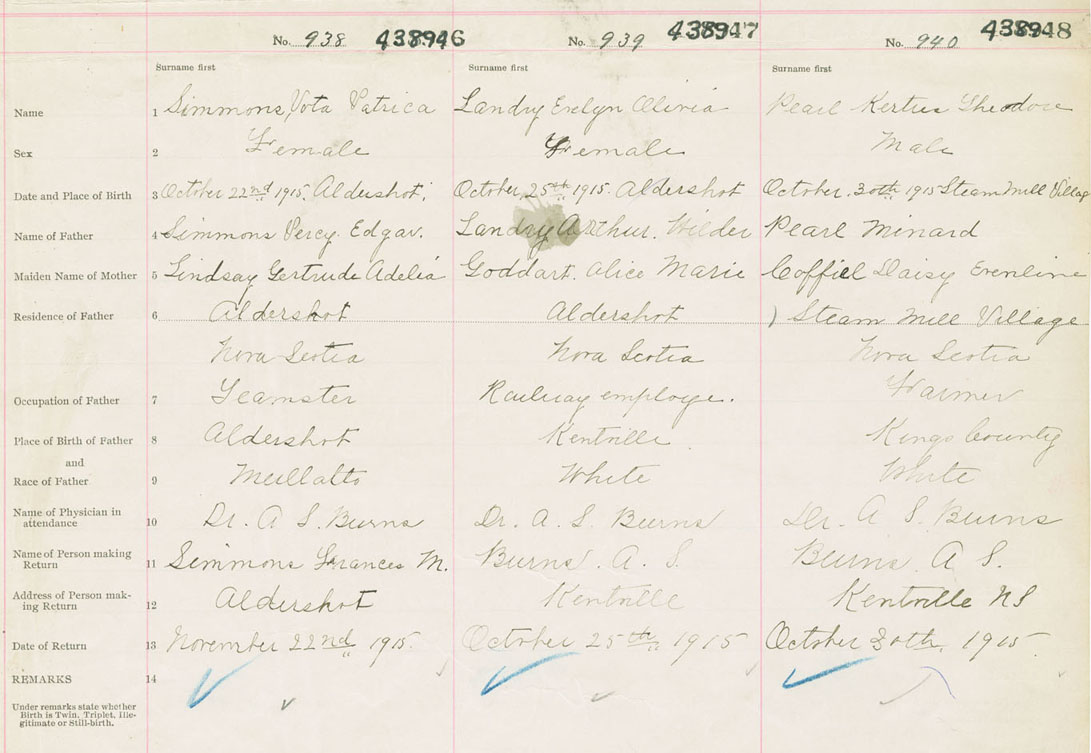 No. 938 438946 No. 939 438947 No. 940 438948
Surname first Surname first Surname first
Name 1 Simmons, Vota Patrica Landry Evelyn Olivia Pearl Kertus Theodore
Sex 2 Female Female Male
Date and Place of Birth 3 October 22nd 1915. Aldershot. October, 25th 1915. Aldershot October. 30th 1915 Steam Mill Village
Name of Father 4 Simmons Percy Edgar. Landry Arthur. Wilder Pearl Minard
Maiden Name of Mother 5 Lindsay Gertrude Adelia Goddart. Alice Marie Coffiel Daisy Evenline
Residence of Father 6 Aldershot Aldershot Steam Mill Village
Nova Scotia Nova Scotia Nova Scotia
Occupation of Father 7 Teamster Railway employe. Farmer
Place of Birth of Father 8 Aldershot Kentville Kings County
and
Race of Father 9 Mullatto White White
Name of Physician in
attendance 10 Dr. A S. Burns Dr. A. S. Burns Dr. A S. Burns
Name of Person making
Return 11 Simmons Frances M. Burns. A. S. Burns. A S.
Address of Person mak-
ing Return 12 Aldershot Kentville Kentville NS
Date of Return 13 November 22nd 1915. October 25th 1915 October 30th, 1915
REMARKS 14
Under remarks state whether
Birth is Twin, Triplet, Ille-
gitimate or Still-birth.